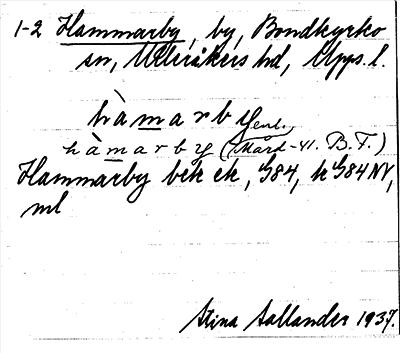 1-2 Hammarby, by, Bondkyrko
sn, Ulleråkers hd, Upps. l.
hàmarby enl.
hàmarby (Mård -41. B.F.)
Hammarby bek ek, G84, k G84 NV,
ml
Stina Sallander 1937.